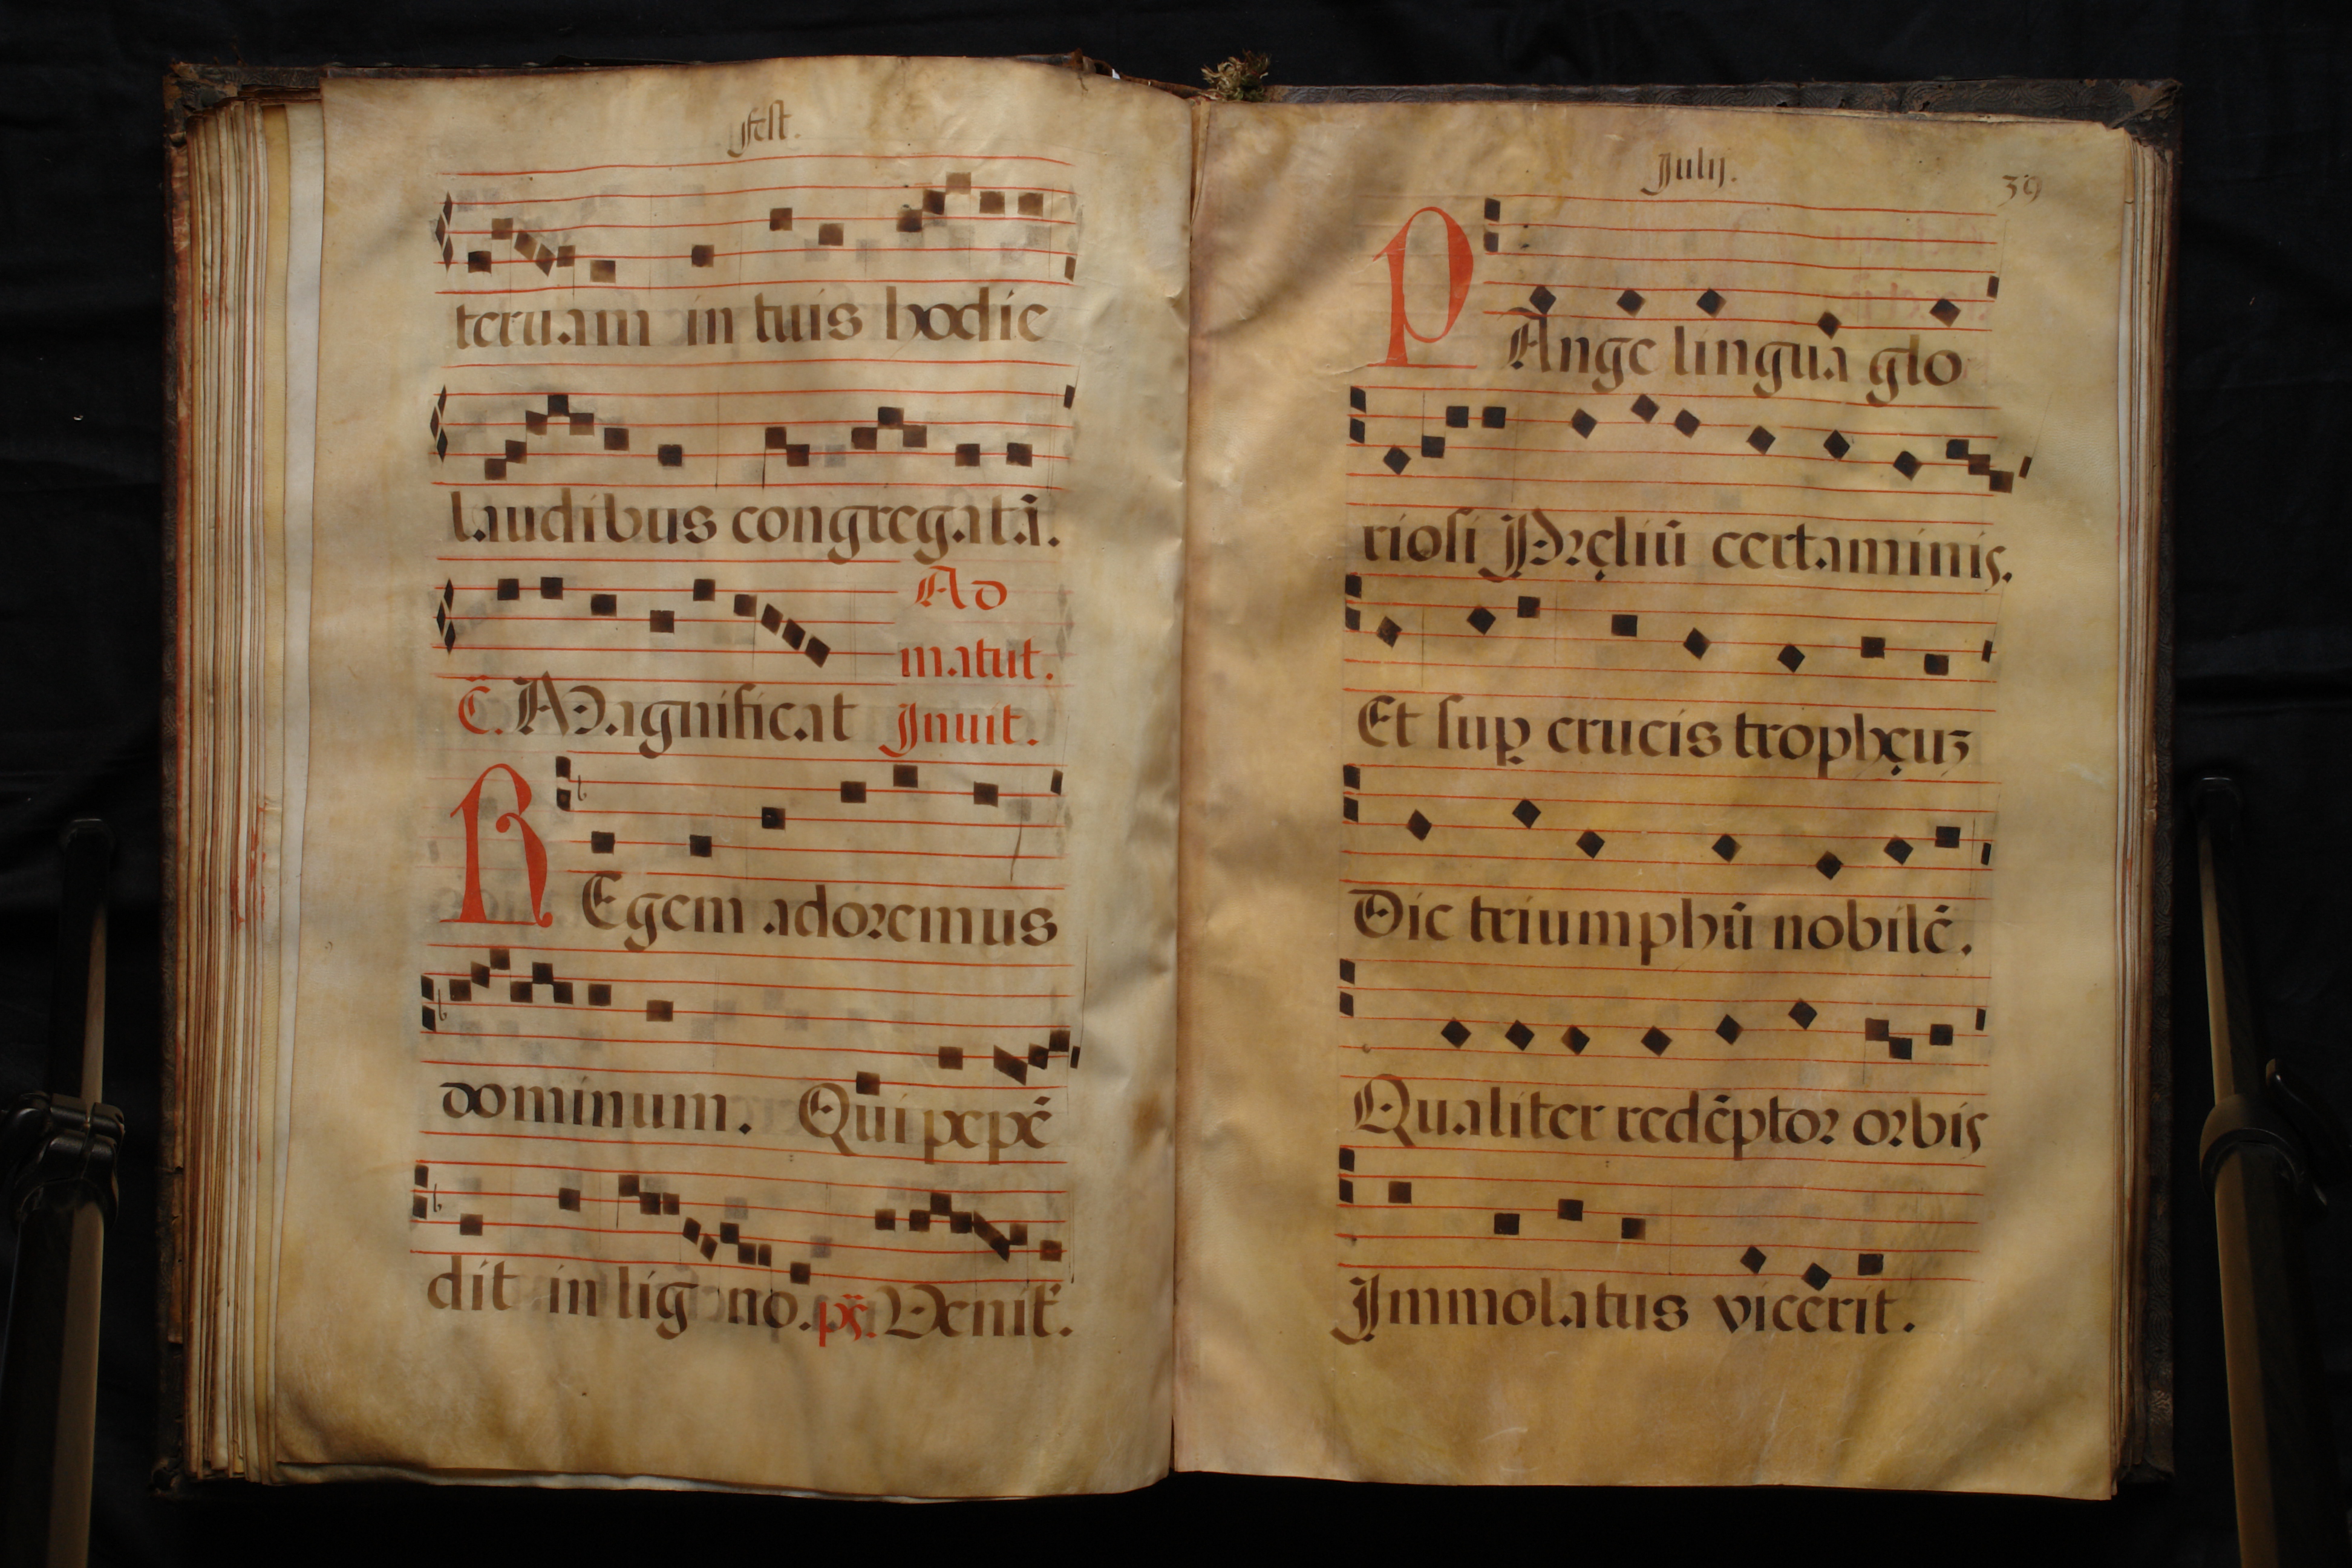 fest.
teruam in tuis hodie
laudibus congregatā.
Ad
matut.
C̄. Magnificat Inuit.
REgem adoremus
dominum. Qui pepē
dit in lig no. ps̄. Venit̄.
Julij. 39
PAnge lingua glo
riosi Pręliū certaminis.
Et sup̱ crucis trophęuʒ
Dic triumphū nobilē.
Qualiter redēptor orbis
Immolatus vicerit.